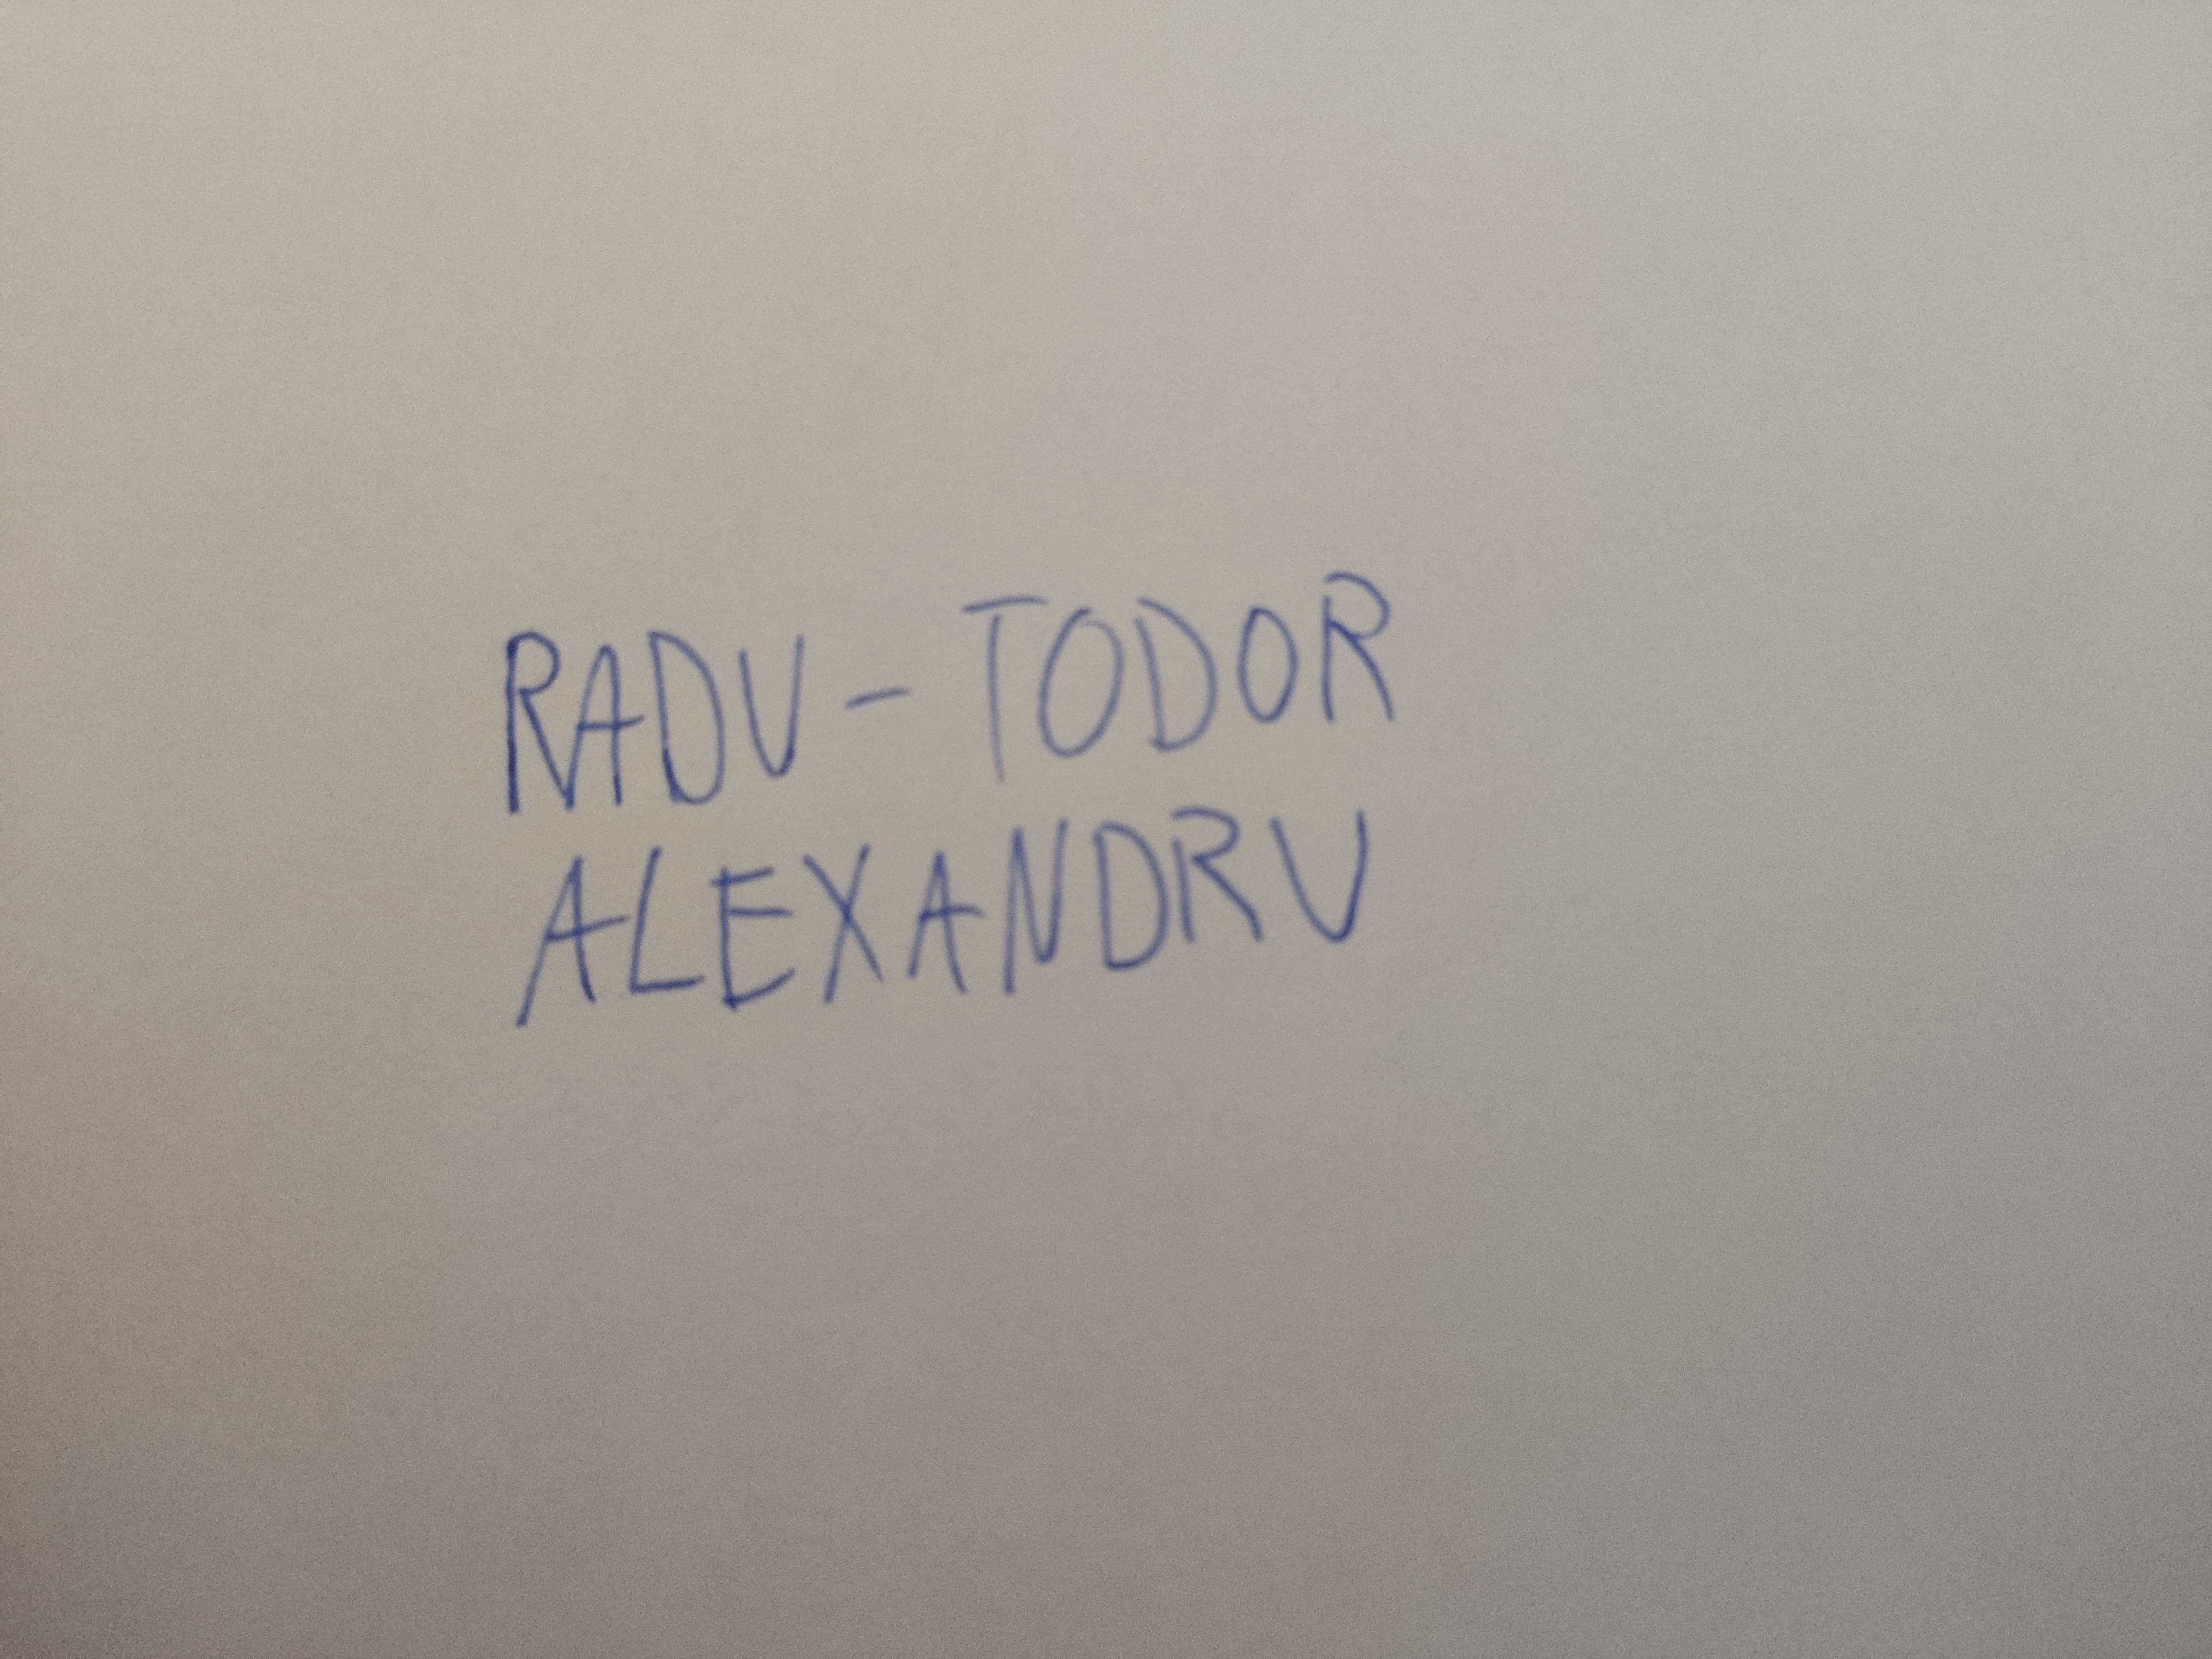 RADU - TODOR
ALEXANDRU